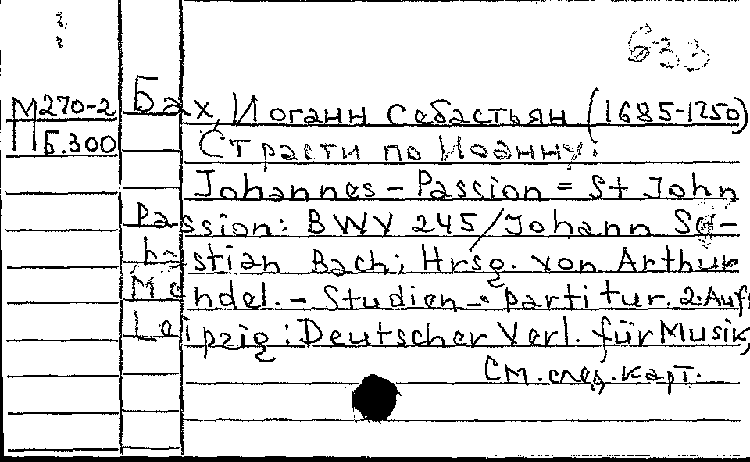 633
М270-2
Б.300
Бах, Иоганн Себастьян (1685-1750)
Страсти по Иоанну:
Johannes - Passion = St John
passion: BWV 245/Johann Se-
bastian Bach; Hrsg. von Arthur
Mendel. - Studien - partitur. 2. Aufl
Leipzig: Deutscher Verl. für Musik,
См. след. карт.